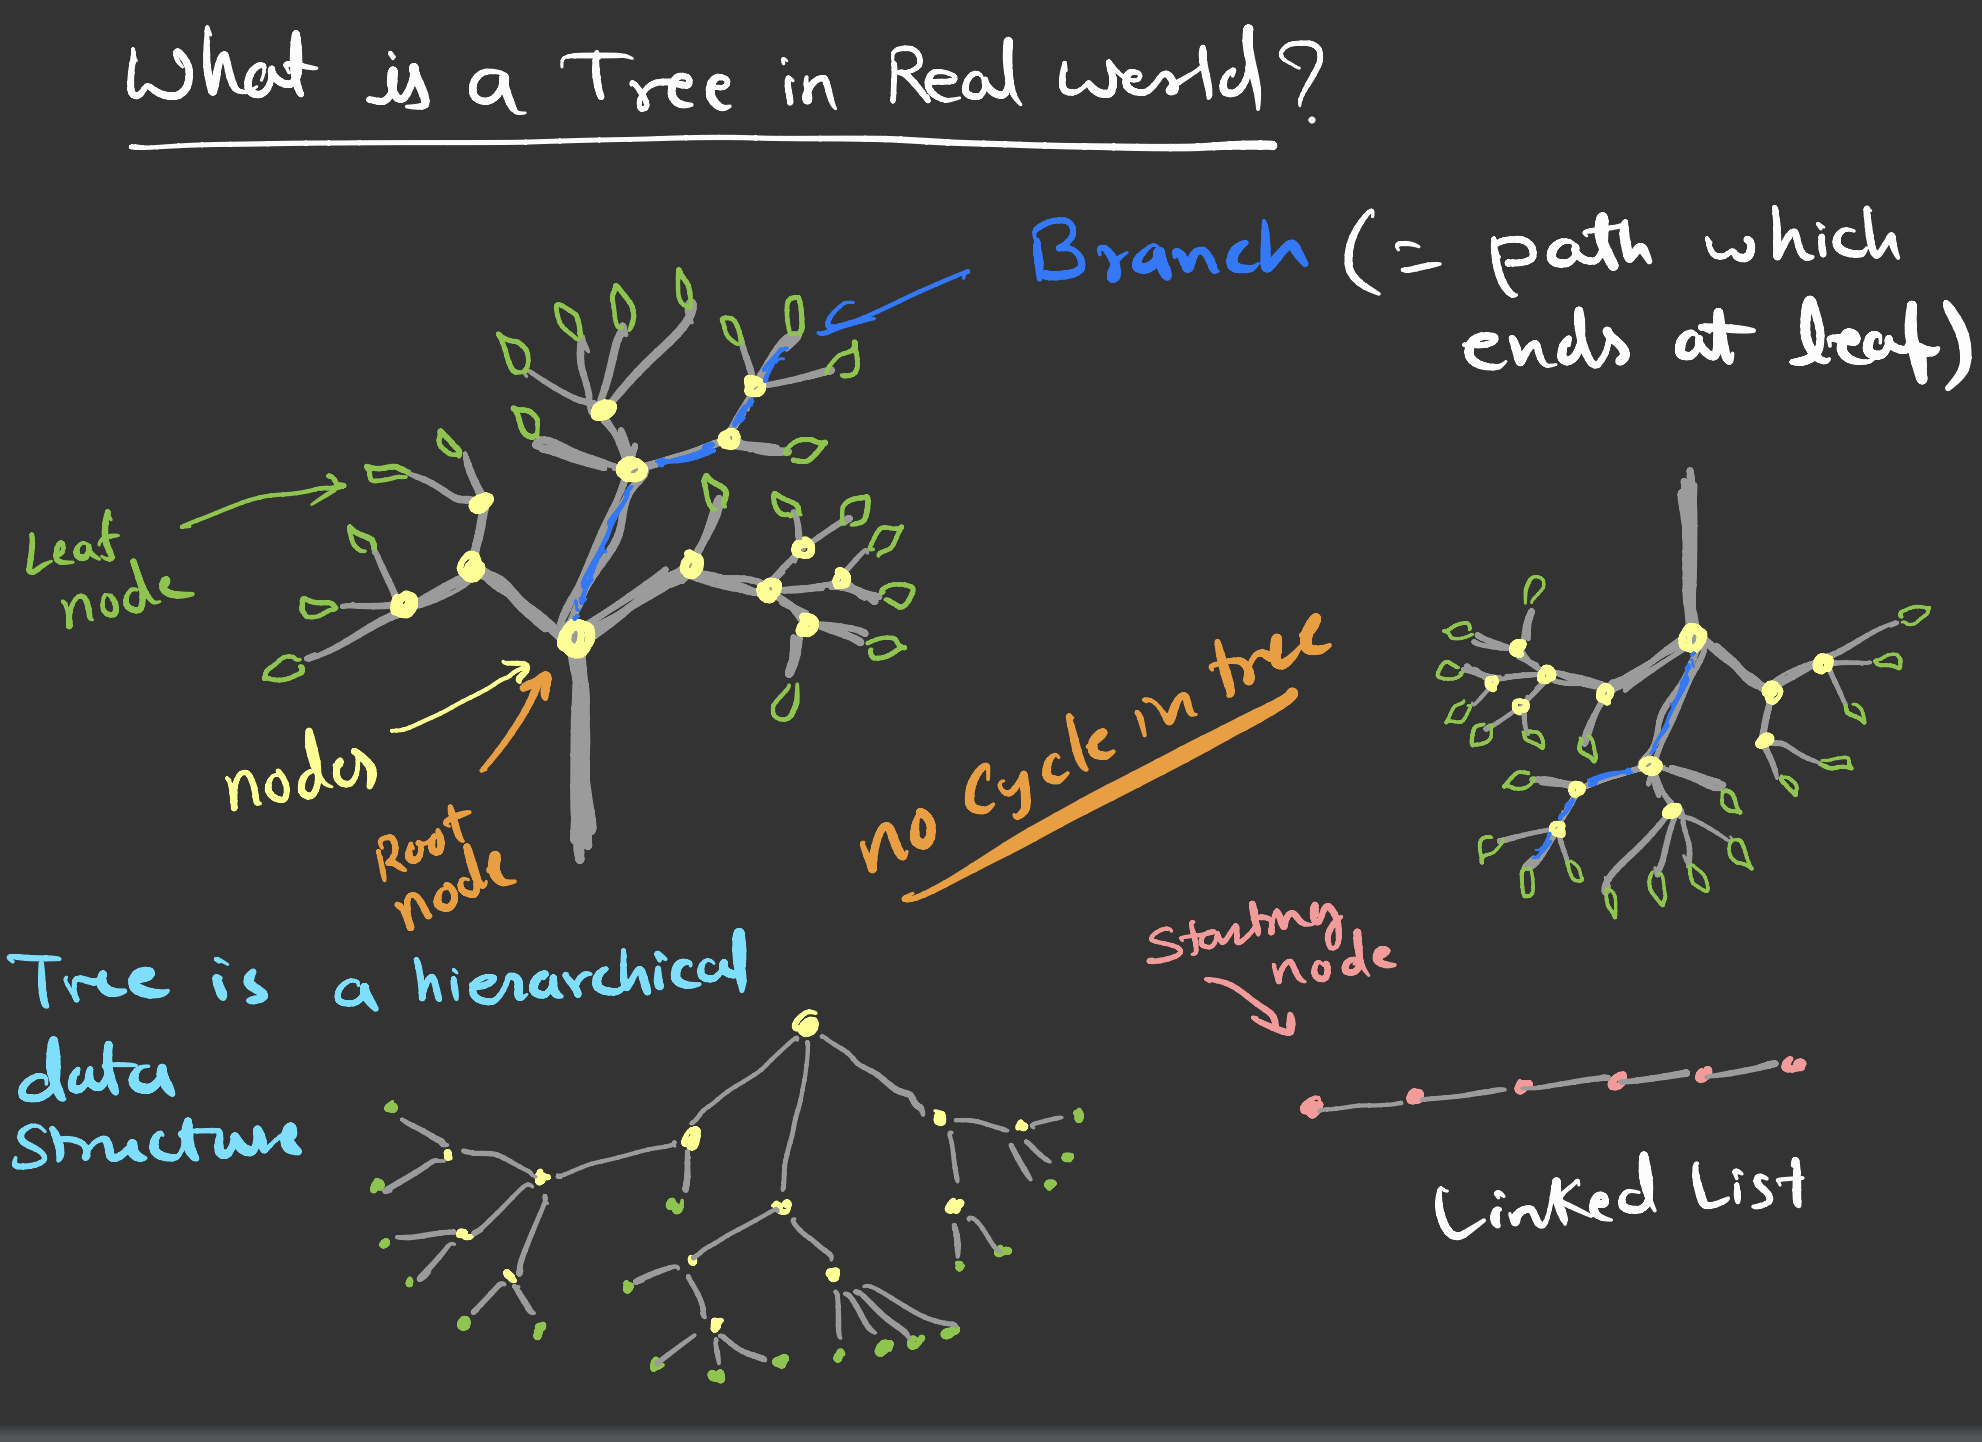 What is a Tree in Real world?
Branch (= path which
ends at leaf)
Leaf
node
nodes
Root
node
no cycle in tree
Tree is a hierarchical
data
structure
Starting
node
Linked List